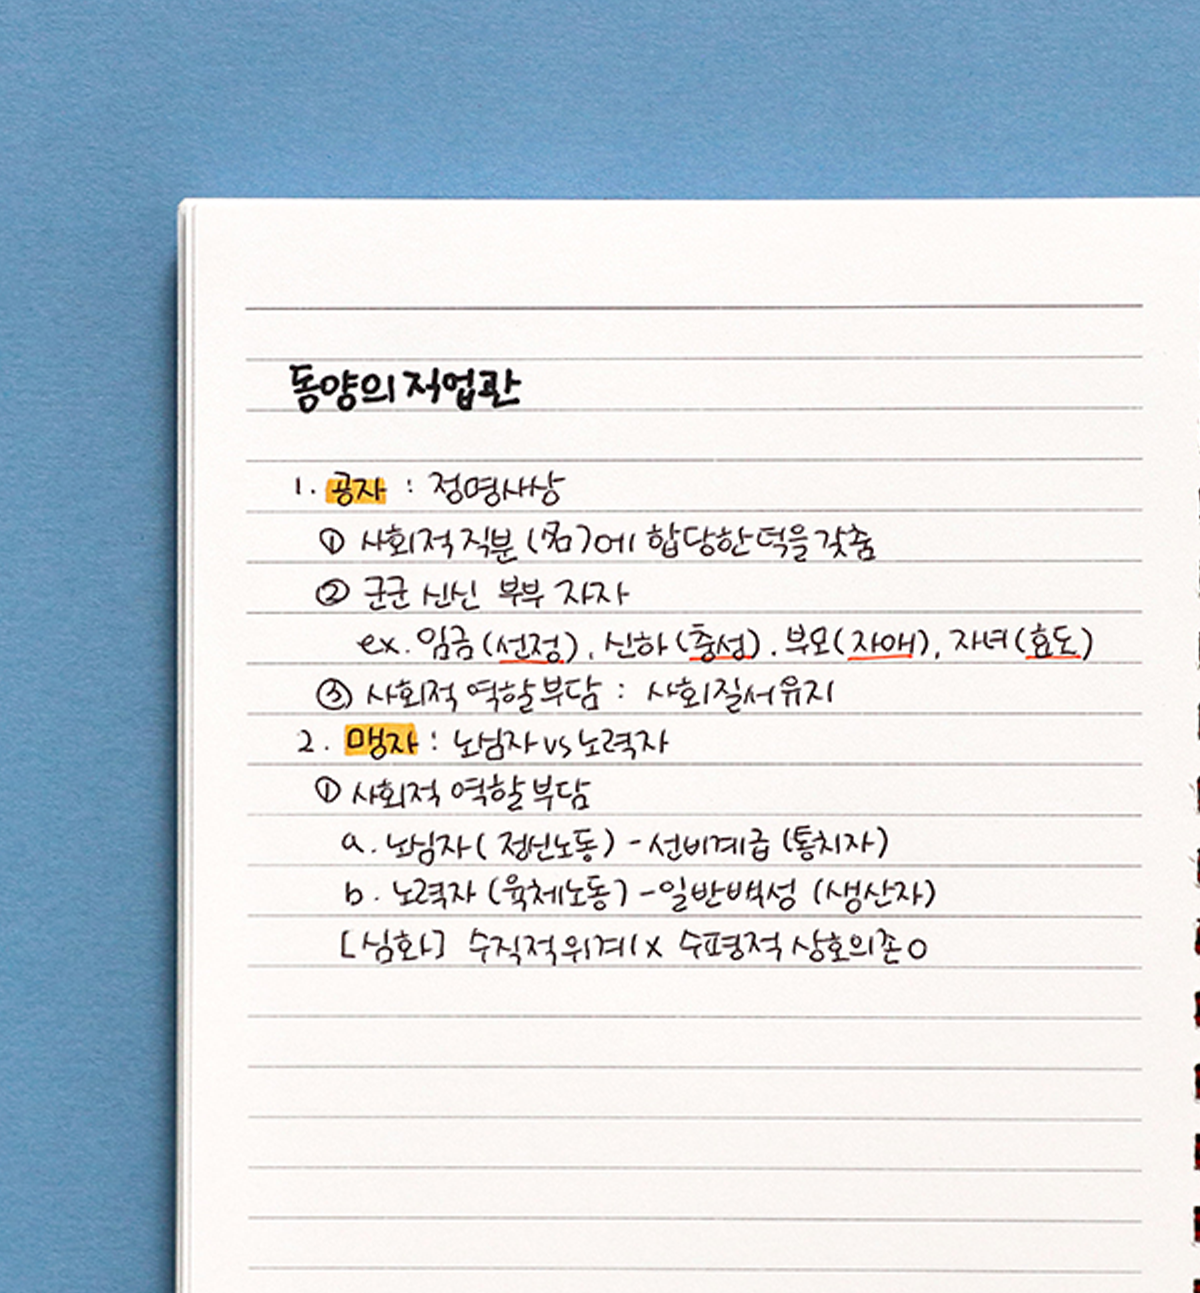 동양의 직업관
1. 공자 : 정명사상
① 사회적 직분 (名)에 합당한 덕을 갖춤
② 군군 신신 부부 자자
ex. 임금 (선정), 신하 (충성). 부모 (자애), 자녀 (효도)
③ 사회적 역할 부담 : 사회질서 유지
2. 맹자 : 노심자 vs 노력자
① 사회적 역할 부담
a. 노심자 ( 정신노동) - 선비계급 (통치자)
b. 노력자 (육체노동) - 일반백성 (생산자)
[심화] 수직적 위계 X 수평적 상호의존 O